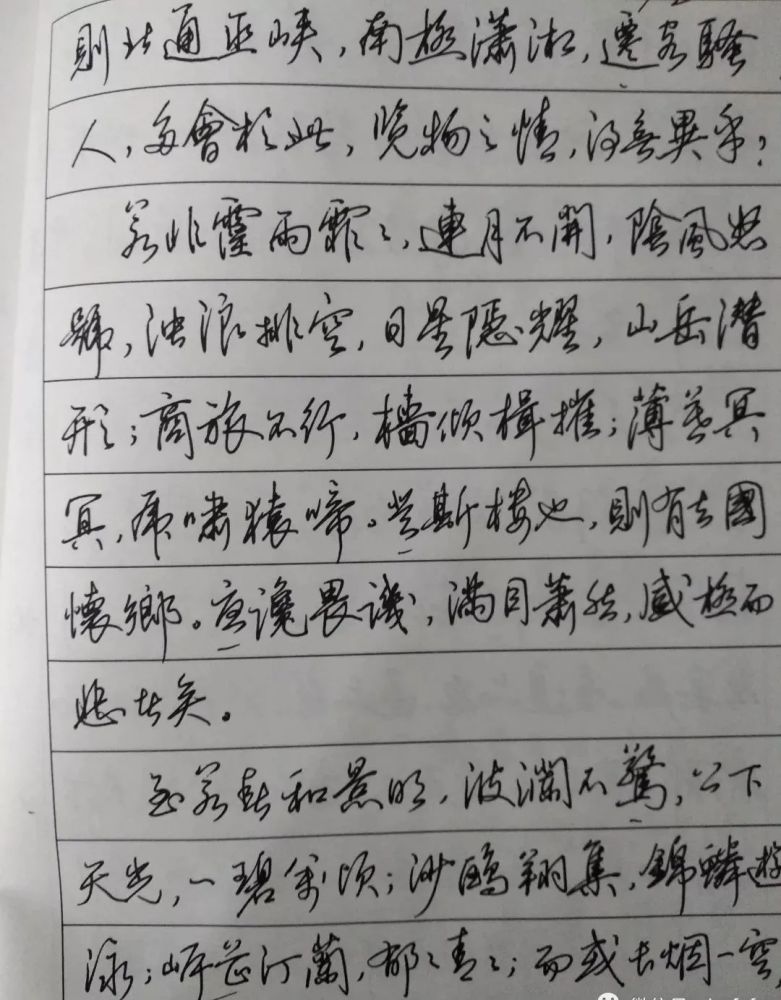 則北通巫峽，南極瀟湘，遷客騷
人，多會於此，覽物之情，得無異乎？
若非霪雨霏〻，連月不開，陰風怒
號，浊浪排空，日星隱耀，山岳潛
形；商旅不行，檣倾楫摧；薄暮冥
冥，虎嘯猿啼。登斯楼也，則有去國
懷鄉。忧讒畏譏，满目蕭然，感極而
悲者矣。
至若春和景明，波瀾不驚，上下
天光，一碧萬顷；沙鷗翔集，錦鱗遊
泳；岸芷汀蘭，郁〻青〻；而或长烟一空